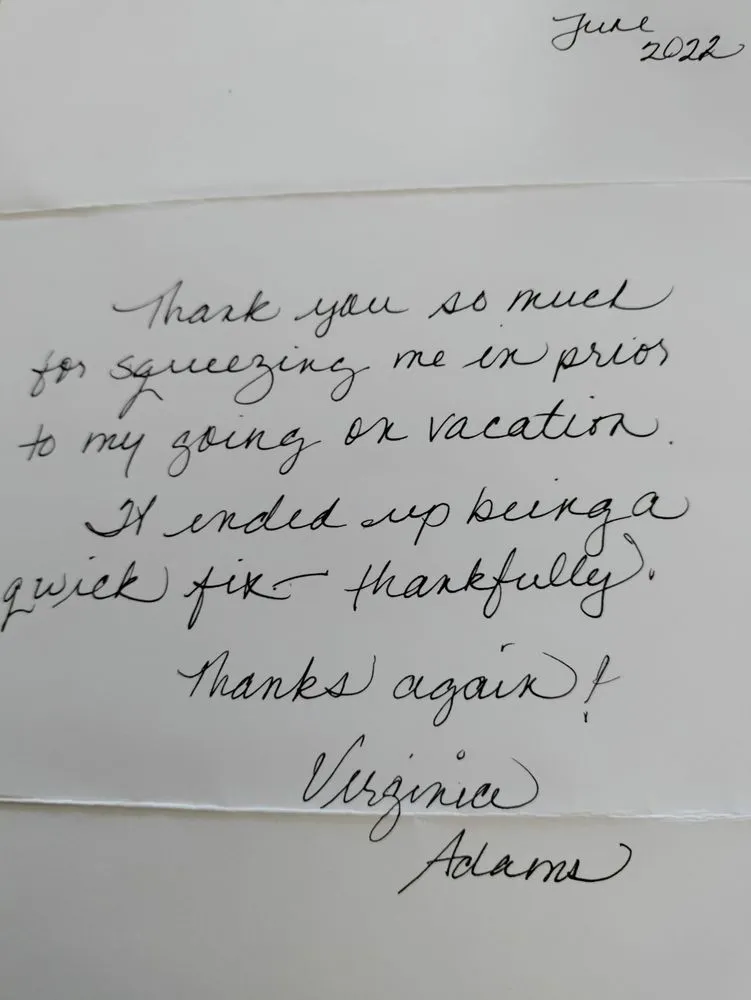 June
2022
Thank you so much
for squeezing me in prior
to my going on vacation.
It ended up being a
quick fix - thankfully.
Thanks again!
Virginia
Adams